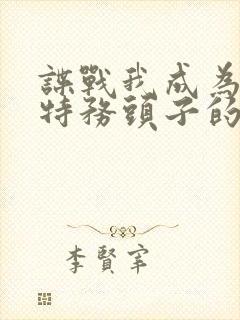 諜戰我成為
特務頭子的
李賢宰